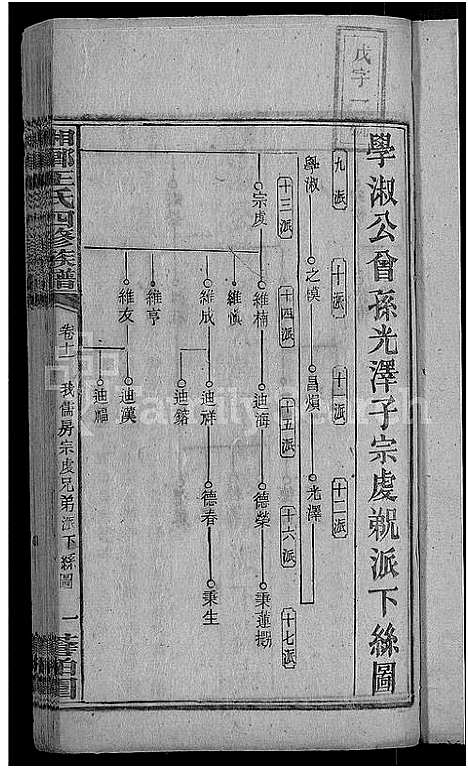 戊字一
學淑公曾孫光澤子宗虔派下絲圖
九派
十派
十一派
十二派
學淑
之模
昌熉
光澤
十三派
十四派
十五派
十六派
十七派
宗虔
維楠
迪海
德榮
秉蓮
維慎
維成
迪祥
德春
秉生
迪鎔
維亨
維友
迪漢
迪福
湘鄉王氏四修族譜
卷十一
我儒房宗虔兄弟派下絲圖
一
FamilySearch